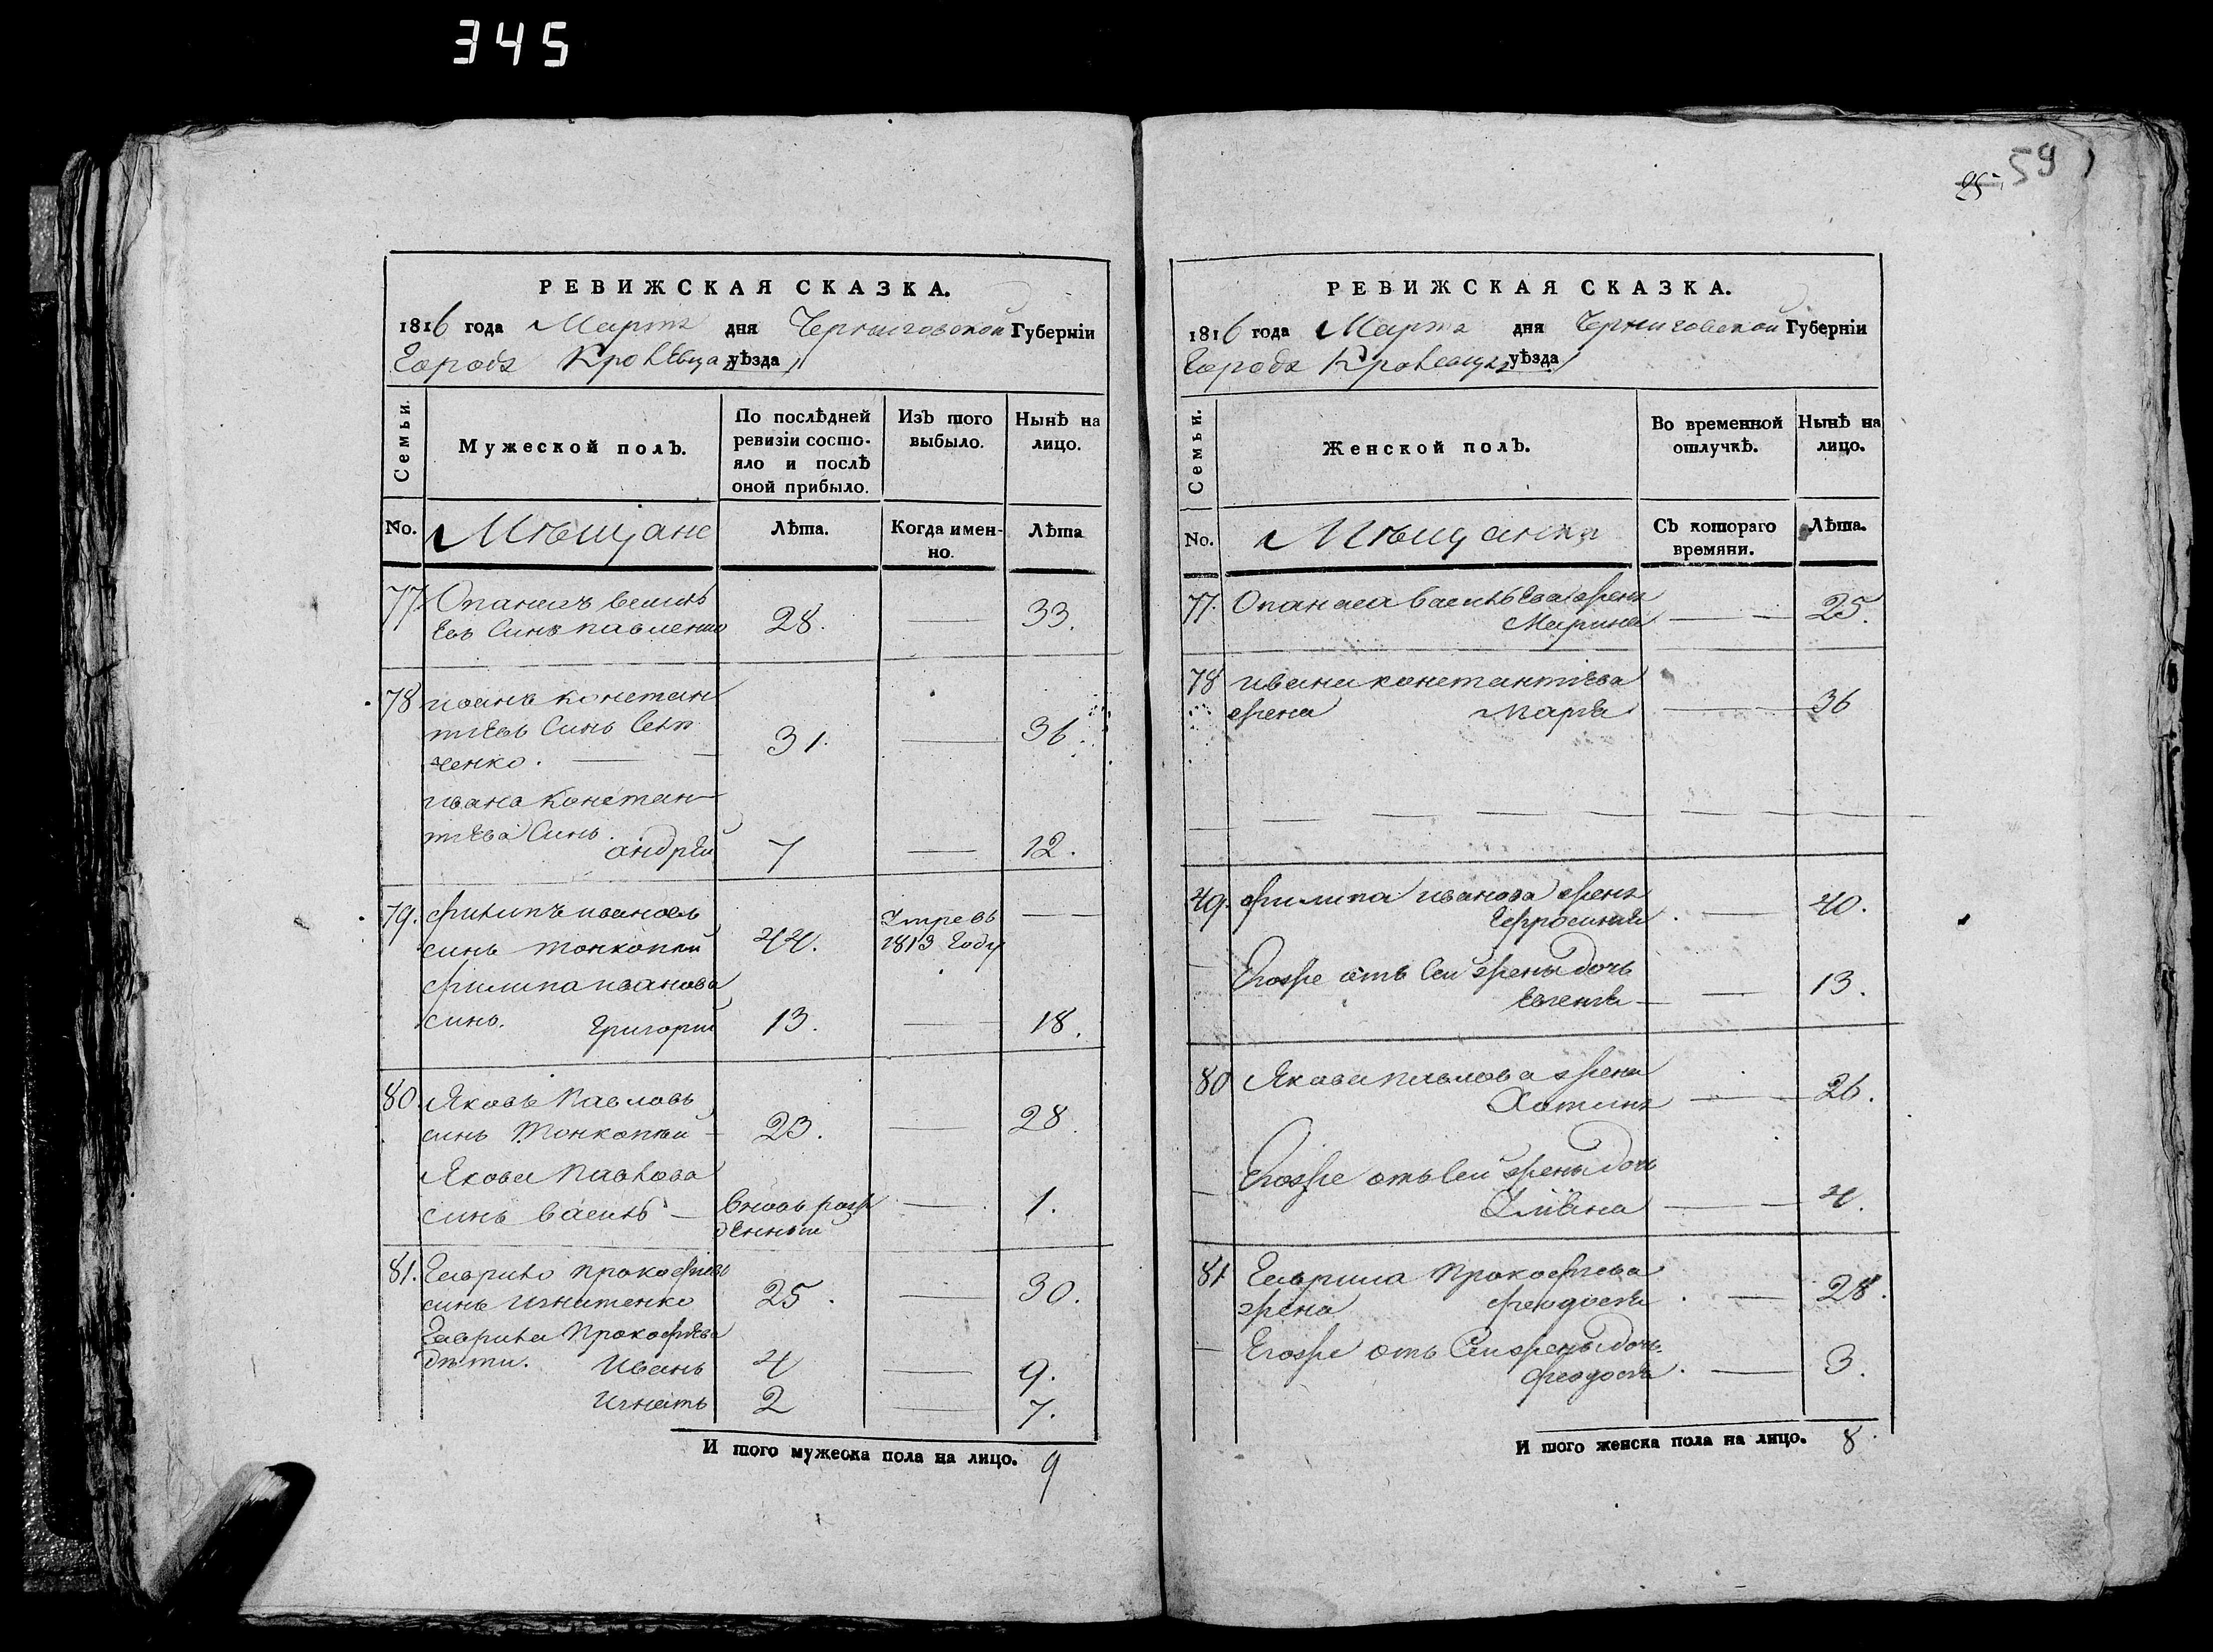 345
59
25
РЕВИЖСКАЯ СКАЗКА.
1816 года Марта дня Черниговской Губерніи
Города Кролѣвца уѣзда
Семьи.
Мужеской полъ.
По послѣдней
ревизіи состо-
яло и послѣ
оной прибыло.
Изъ того
выбыло.
Нынѣ на
лицо.
No.
Мѣщане
Лѣта.
Когда имен-
но.
Лѣта
77 Опанасъ василъ
евъ Синъ павленко 28. 33.
78 иванъ констан
тіевъ Синъ
ченко. 31. 36.
ивана констан
тіева Синъ.
андрей 7 12.
79. филипъ ивановъ Умре въ
синъ тонконогий 44. 1813 Году
филипа иванова
синъ. Григорий 13. 18.
80. Яковъ Павловъ
синъ Тонконогий 23. 28.
Якова Павлова
синъ василъ вновь рож 1.
денный
81. Гаврило прокофіевъ
синъ игнатенко 25. 30.
Гаврила Прокофіева
дѣти. Иванъ 4 9.
Игнатъ 2 7.
И того мужеска пола на лицо. 9
РЕВИЖСКАЯ СКАЗКА.
1816 года Марта дня Черниговской Губерніи
Города Кролевца уѣзда
Семьи.
Женской полъ.
Во временной
отлучкѣ.
Нынѣ на
лицо.
No.
Мѣщанки
Съ котораго
времяни.
Лѣта.
77. Опанаса василъева жена
Марина 25.
78 ивана константіева
жена Марія 36
49. филипа иванова жена
Ефросинія 40.
Егоже отъ сей жены дочь
Евгенія 13.
80 Якова павлова жена
26.
Егоже отъ сей жены дочь
Уліяна 4.
81 Гаврила Прокофіева
жена феодосія 28.
Егоже отъ Сей жены дочь
феодосія 3.
И того женска пола на лицо. 8